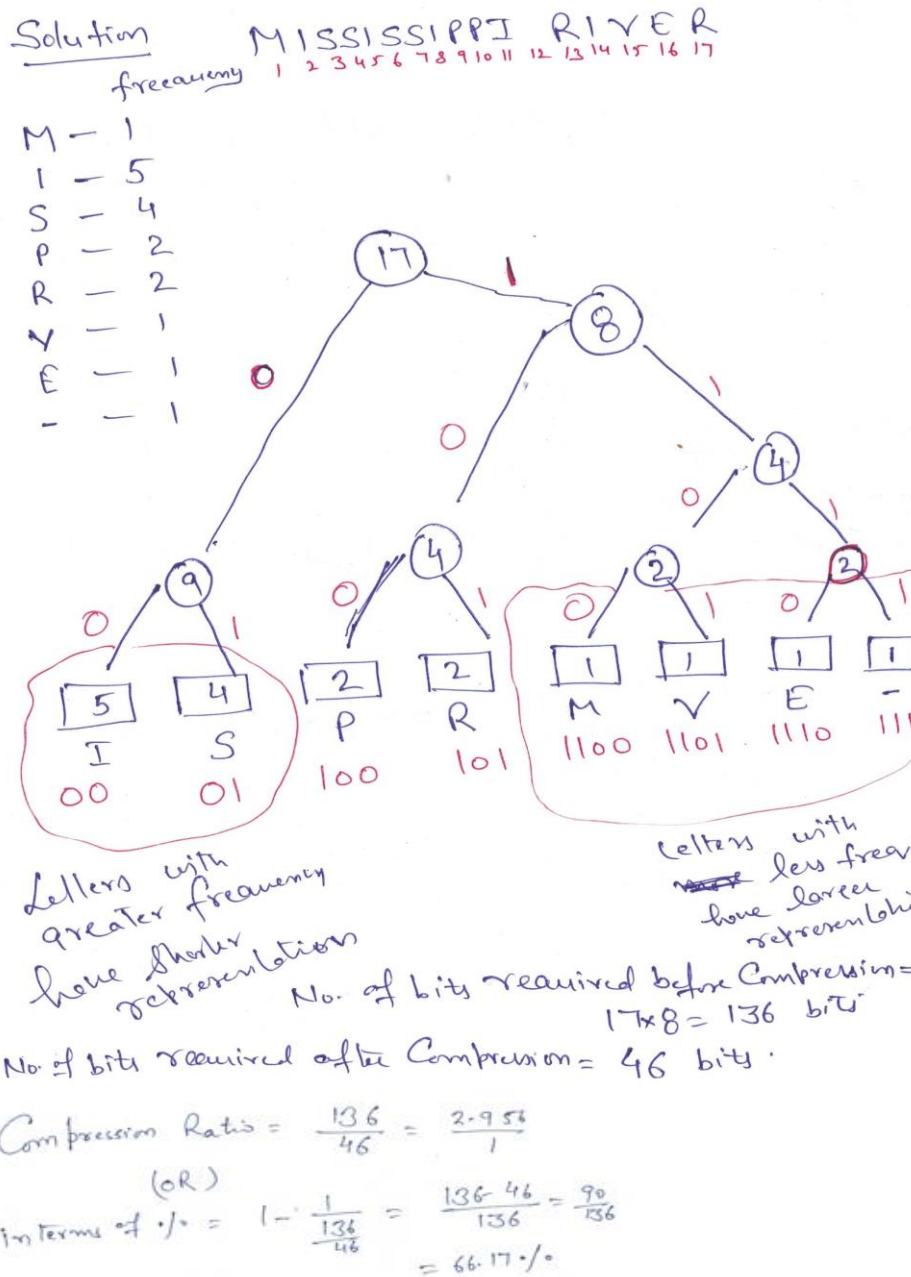 Solution MISSISSIPPI RIVER
freequeny 1 2 3 4 5 6 7 8 9 10 11 12 13 14 15 16 17
M - 1
I - 5
S - 4
P - 2
R - 2
V - 1
E - 1
- - 1
17
1
8
0
1
0
4
0
1
9
4
2
2
0 1 0 1 0 1 0 1
5 4 2 2 1 1 1 1
I S P R M V E -
00 01 100 101 1100 1101 1110 111
Letters with
greater frequency
have Shorter
representation
Letters with
less freq
have larger
representati
No. of bits required before Compression =
17x8 = 136 bits
No. of bits required after Compression = 46 bits.
Compression Ratio = 136/46 = 2.956/1
(OR)
in terms of % = 1 - 1/(136/46) = 136-46/136 = 90/136
= 66.17 %